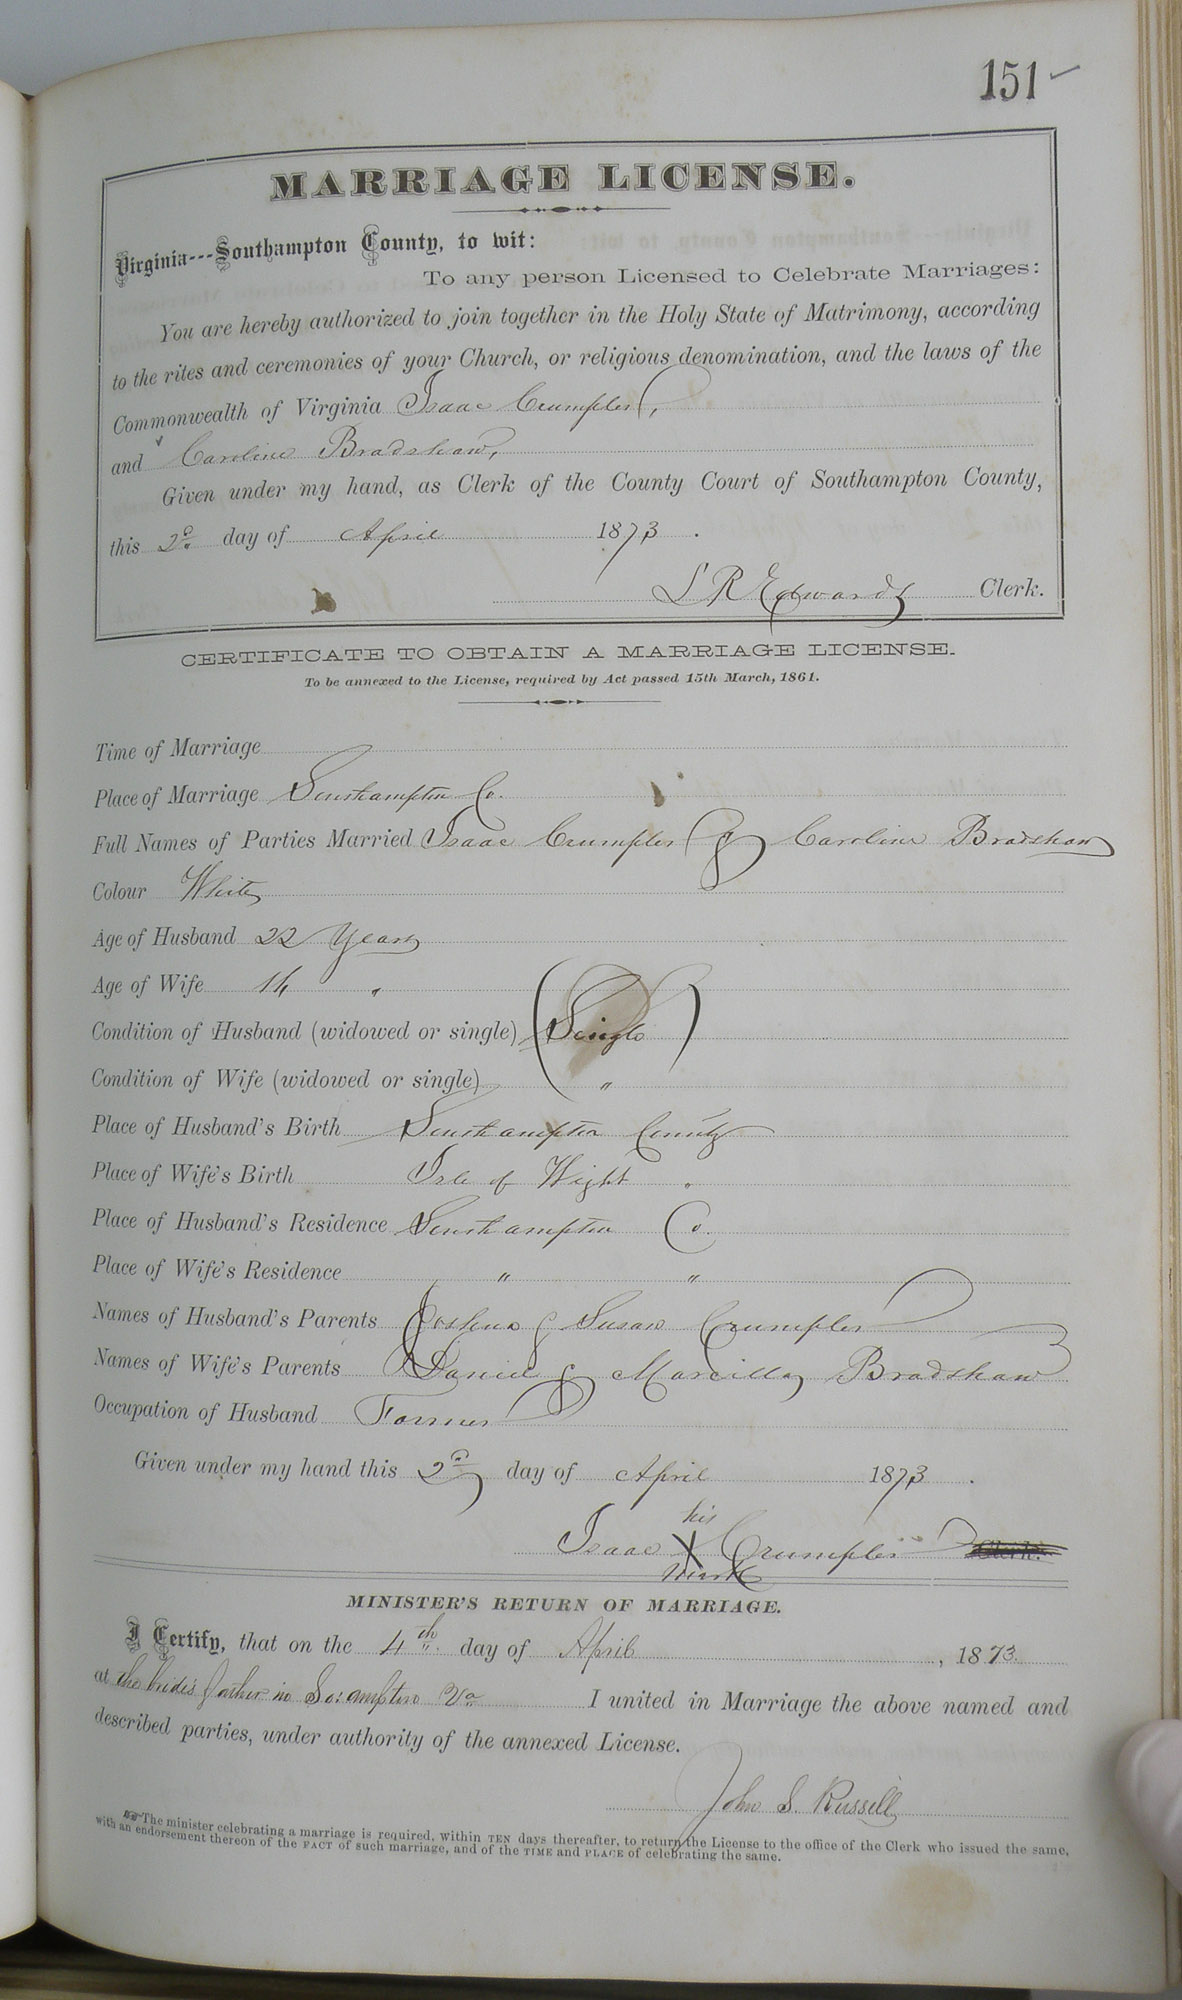 151
MARRIAGE LICENSE.
Virginia---Southampton County, to wit:
To any person Licensed to Celebrate Marriages:
You are hereby authorized to join together in the Holy State of Matrimony, according
to the rites and ceremonies of your Church, or religious denomination, and the laws of the
Commonwealth of Virginia Isaac Crumpler,
and Caroline Bradshaw,
Given under my hand, as Clerk of the County Court of Southampton County,
this 2d. day of April 1873.
L R Edwards Clerk.
CERTIFICATE TO OBTAIN A MARRIAGE LICENSE.
To be annexed to the License, required by Act passed 15th March, 1861.
Time of Marriage
Place of Marriage Southampton Co.
Full Names of Parties Married Isaac Crumpler & Caroline Bradshaw
Colour White
Age of Husband 22 Years
Age of Wife "
Condition of Husband (widowed or single) Single
Condition of Wife (widowed or single) "
Place of Husband's Birth Southampton County
Place of Wife's Birth Isle of Wight "
Place of Husband's Residence Southampton Co.
Place of Wife's Residence " "
Names of Husband's Parents Joshua & Susan Crumpler
Names of Wife's Parents Daniel & Marcilla Bradshaw
Occupation of Husband Farmer
Given under my hand this 2d day of April 1873.
his
Isaac X Crumpler Clerk.
mark
MINISTER'S RETURN OF MARRIAGE.
I Certify, that on the 4th day of April, 1873
at the bride's father in So:ampton Va I united in Marriage the above named and
described parties, under authority of the annexed License.
John S. Russell
The minister celebrating a marriage is required, within TEN days thereafter, to return the License to the office of the Clerk who issued the same,
with an endorsement thereon of the FACT of such marriage, and of the TIME and PLACE of celebrating the same.